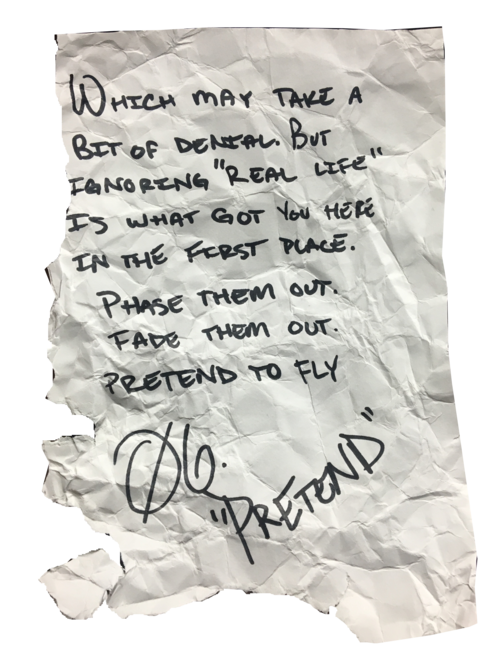 WHICH MAY TAKE A
BIT OF DENIAL. BUT
IGNORING "REAL LIFE"
IS WHAT GOT YOU HERE
IN THE FIRST PLACE.
PHASE THEM OUT.
FADE THEM OUT.
PRETEND TO FLY
Ø6.
"PRETEND"